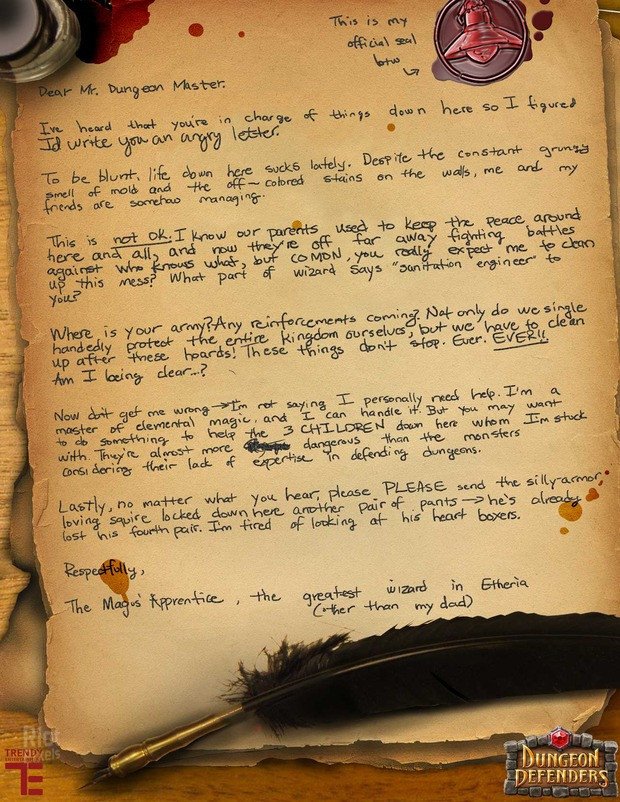 This is my
official seal
btw
Dear Mr. Dungeon Master.
I've heard that you're in charge of things down here so I figured
I'd write you an angry letter.
To be blunt, life down here sucks lately. Despite the constant grungy
smell of mold and the off-colored stains on the walls, me and my
friends are somehow managing.
This is not OK. I know our parents used to keep the peace around
here and all, and now they're off far away fighting battles
against who knows what, but COMON, you really expect me to clean
up this mess? What part of wizard says "sanitation engineer" to
you?
Where is your army? Any reinforcements coming? Not only do we single
handedly protect the entire kingdom ourselves, but we have to clean
up after these hoards! These things don't stop. Ever. EVER!!
Am I being clear...?
Now don't get me wrong → I'm not saying I personally need help. I'm a
master of elemental magic, and I can handle it. But you may want
to do something to help the 3 CHILDREN down here whom I'm stuck
with. They're almost more dangerous than the monsters
considering their lack of expertise in defending dungeons.
Lastly, no matter what you hear, please PLEASE send the silly-armor
loving squire locked down here another pair of pants → he's already
lost his fourth pair. I'm tired of looking at his heart boxers.
Respectfully,
The Magus' Apprentice, the greatest wizard in Etheria
(other than my dad)
Riot
TRENDY
ENTERTAINMENT
TE
DUNGEON
DEFENDERS